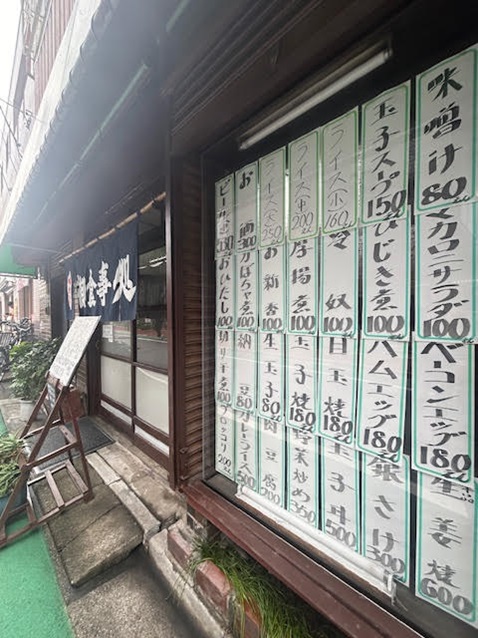 味噌汁 80
マカロニサラダ 100
ベーコンエッグ 180
生姜焼 600
玉子スープ 150
ひじき煮 100
ハムエッグ 180
銀さけ 300
ライス(小) 160
冷奴 100
目玉焼 180
玉子丼 500
ライス(中) 200
厚揚煮 100
玉子焼 180
野菜炒め 350
ライス(大) 250
お新香 100
生玉子 80
肉豆腐
お酒 300
かぼちゃ煮 100
納豆 80
カレーライス 500
ビール
おひたし 100
切り干煮 100
ブロッコリ 200
御食事処